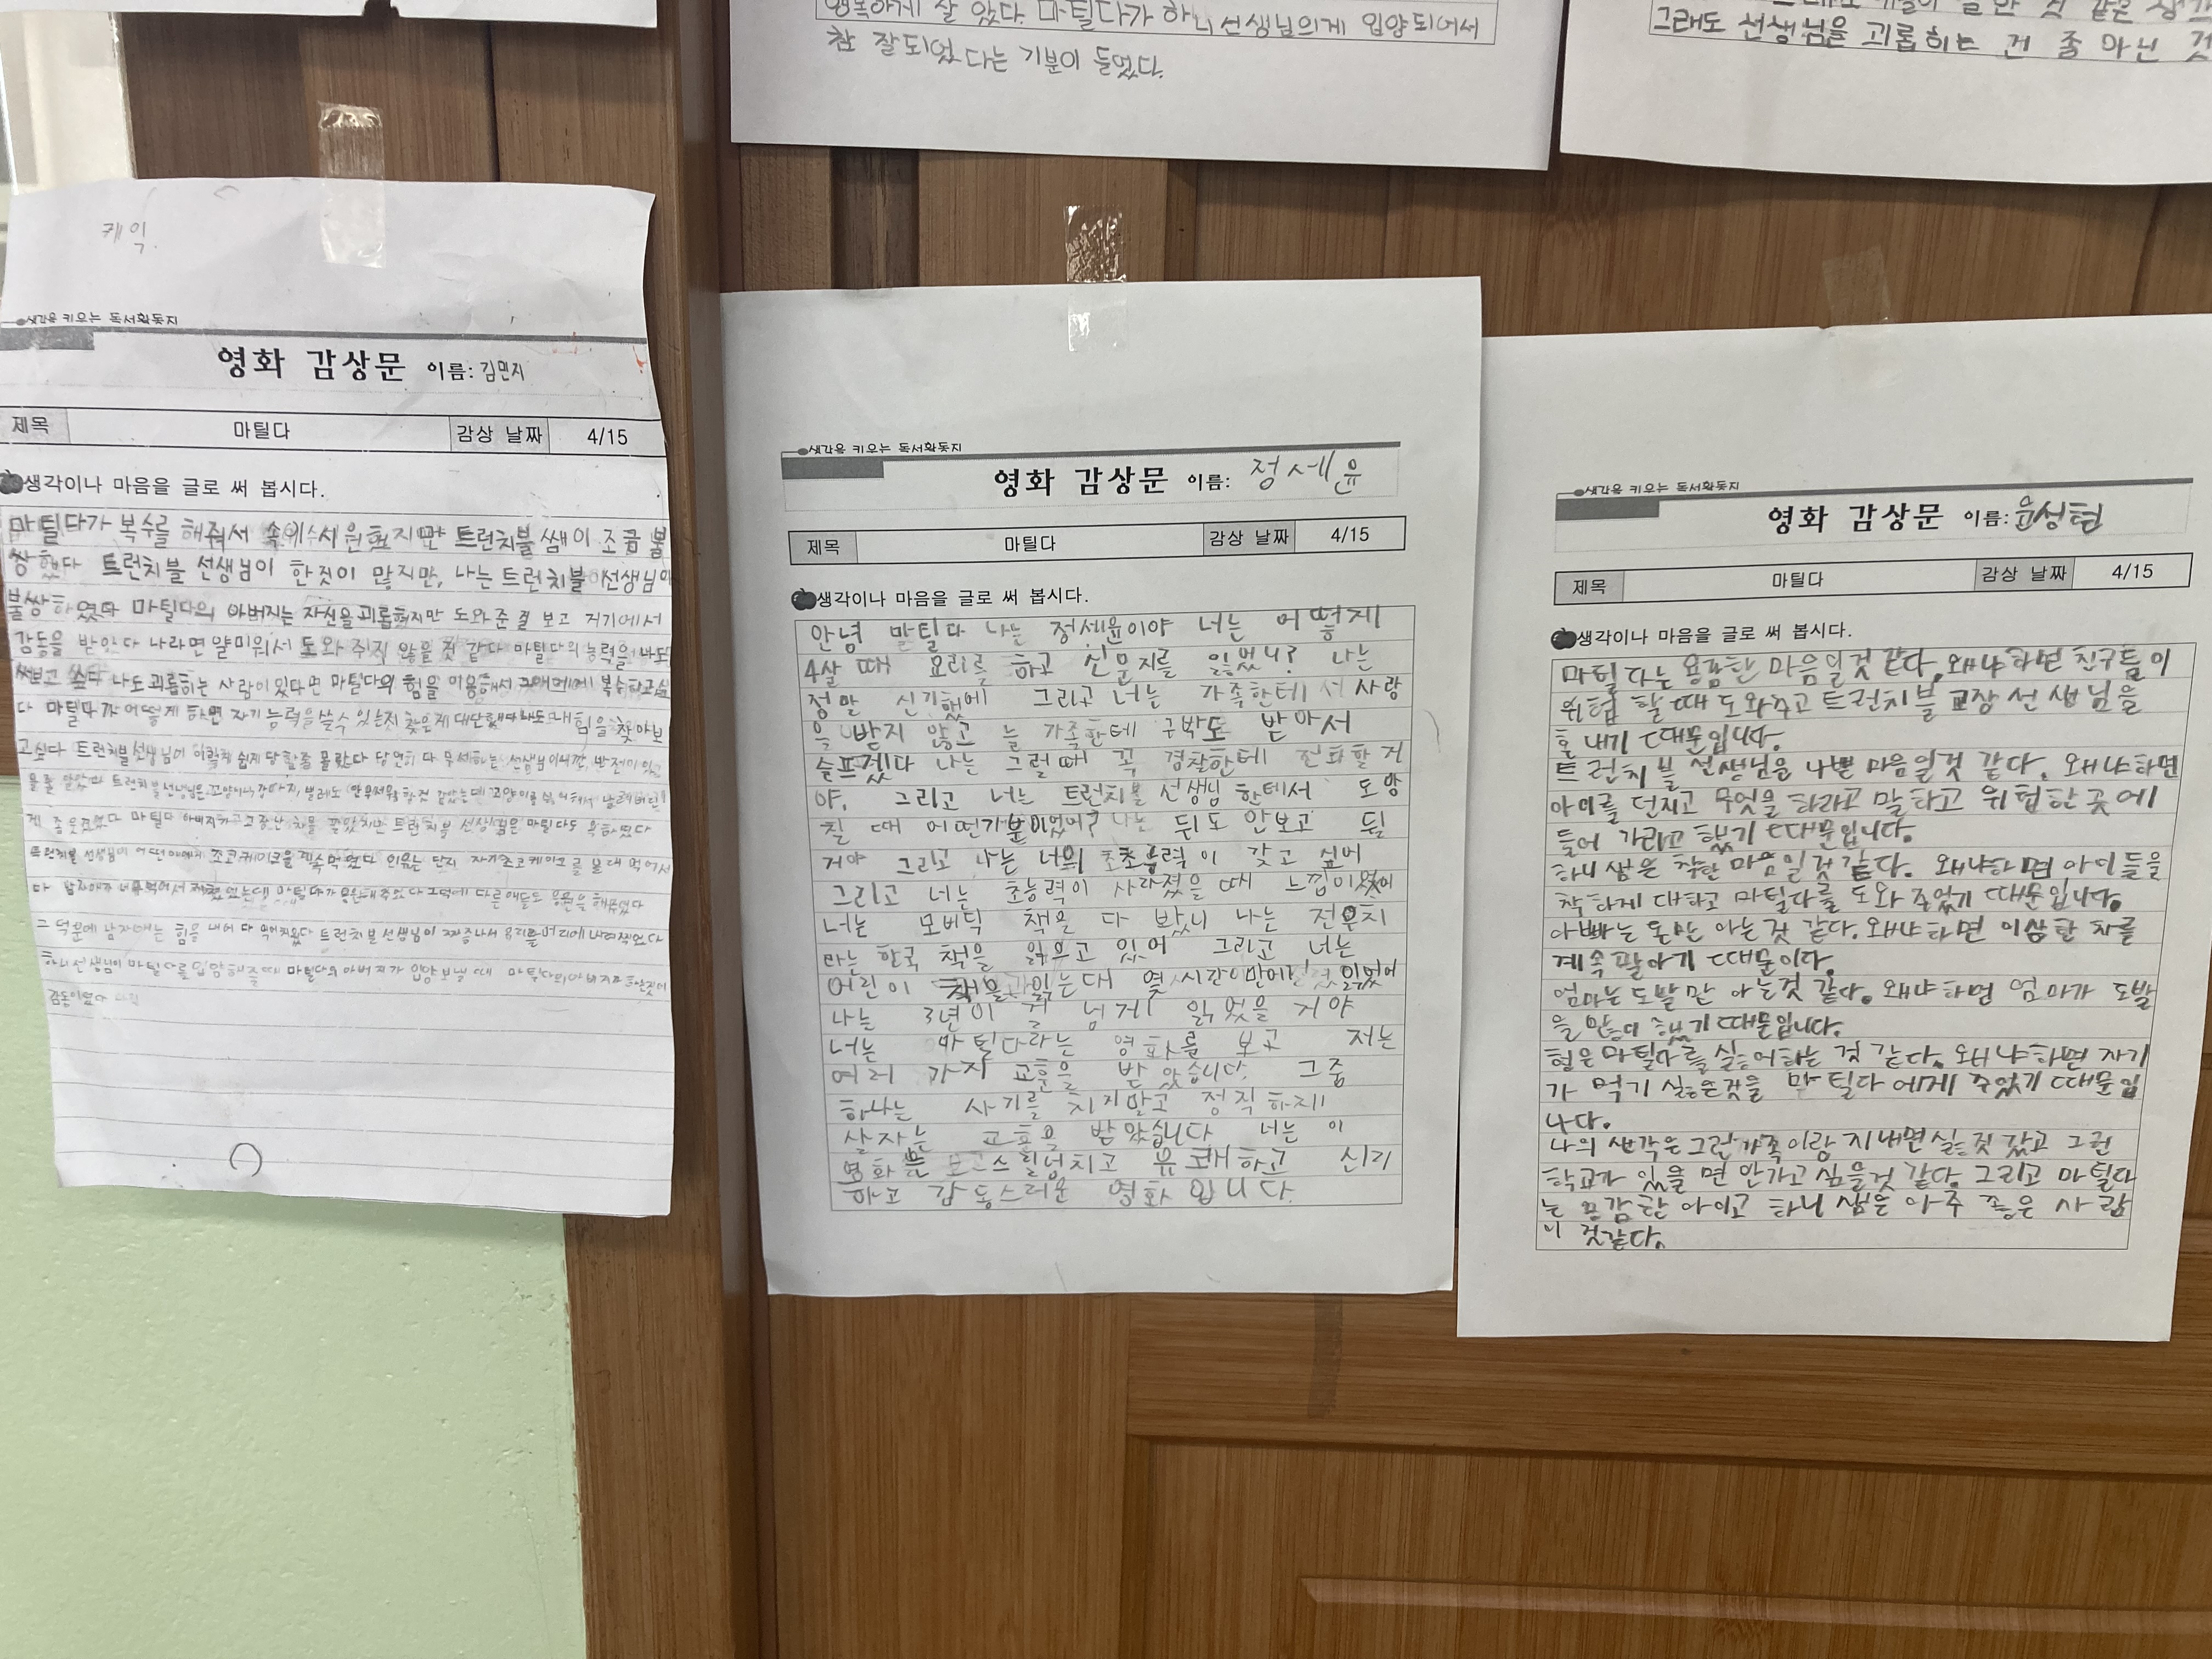 행복하게 살 았다. 마틸다가 하니선생님의게 입양되어서
참 잘되었다는 기분이 들었다.
그래도 선생님을 괴롭히는 건 좀 아닌 것
케익
생각을 키우는 독서활동지
영화 감상문 이름: 김민지
제목 마틸다 감상 날짜 4/15
생각이나 마음을 글로 써 봅시다.
마틸다가 복수를 해줘서 속이 시원했지만 트런치불 쌤이 조금 불
쌍했다 트런치불 선생님이 한짓이 많지만, 나는 트런치불 선생님이
불쌍하였다 마틸다의 아버지는 자신을 괴롭혔지만 도와준 걸 보고 거기에서
감동을 받았다 나라면 얄미워서 도와 주지 않을 것 같다 마틸다의 능력을 나도
써보고 싶다 나도 괴롭히는 사람이 있다면 마틸다의 힘을 이용해서 복수하고싶
다 마틸다가 어떻게 하면 자기 능력을 쓸수 있는지 찾은게 대단했다 나도 내 힘을 찾아보
고싶다 트런치불선생님이 이렇게 쉽게 당할줄 몰랐다 당연히 다 무서하는 선생님이니깐, 반전이
트런치불선생님은 고양이나 강아지, 벌레도
마틸다 아버지하고 트런치불 선생님은 마틸다도
트런치불 선생님이 초코케이크를 계속먹였다 이유는 단지 자기초코케이크를 몰래 먹어서
마틸다가 응원해주었다 그덕에 다른애들도 응원을 해주었다
그 덕분에 남자애는 힘을 내어 다 먹어치웠다 트런치불 선생님이 짜증나서 유리를 머리에 내려찍었다
하니선생님이 마틸다를 입양해줄때 마틸다의 아버지가 입양보낼 때 마틸다의 아버지가
감동이었다
생각을 키우는 독서활동지
영화 감상문 이름: 정세윤
제목 마틸다 감상 날짜 4/15
생각이나 마음을 글로 써 봅시다.
안녕 마틸다 나는 정세윤이야 너는 어떻게
4살 때 요리를 하고 신문지를 읽었니? 나는
정말 신기했에 그리고 너는 가족한테서 사랑
을 받지 않고 늘 가족한테 구박도 받아서
슬프겠다 나는 그럴때 꼭 경찰한테 전화할 거
야. 그리고 너는 트런치불 선생님 한테서 도망
칠 때 어떤기분이었어? 나는 뒤도 안보고 뛸
거야 그리고 나는 너의 초능력이 갖고 싶어
그리고 너는 초능력이 사라졌을 때 느낌이었어
너는 모비딕 책을 다 봤니 나는 전우치
라는 한국 책을 읽으고 있어 그리고 너는
어린이 책을 읽는대 몇 시간만에 읽었어
나는 3년이 넘게 읽었을 거야
너는 마틸다라는 영화를 보고 저는
여러 가지 교훈을 받았습니다. 그중
하나는 사기를 치지말고 정직하게
살자는 교훈을 받았습니다 너는 이
영화는 스릴넘치고 유쾌하고 신기
하고 감동스러운 영화 입니다.
생각을 키우는 독서활동지
영화 감상문 이름: 윤성현
제목 마틸다 감상 날짜 4/15
생각이나 마음을 글로 써 봅시다.
마틸다는 용감한 마음일것 같다. 왜냐하면 친구들이
위험 할 때 도와주고 트런치불 교장 선생님을
혼 내기 때문입니다.
트런치불 선생님을 나쁜 마음일것 같다. 왜냐하면
아이를 던지고 무엇을 하라고 말하고 위험한 곳에
들어 가라고 했기 때문입니다.
하니 쌤은 착한 마음일것 같다. 왜냐하면 아이들을
착하게 대하고 마틸다를 도와 주었기 때문입니다.
아빠는 돈만 아는것 같다. 왜냐하면 이상한 차를
계속 팔아기 때문이다.
엄마는 도발만 아는것 같다. 왜냐하면 엄마가 도발
을 했기 때문입니다.
형은 마틸다를 싫어하는 것 같다. 왜냐하면 자기
가 먹기 싫은것을 마틸다에게 주었기 때문입
니다.
나의 생각은 그런 가족이랑 지내면 싫을 것 같고 그런
학교가 있을 면 안가고 싶을것 같다. 그리고 마틸다
는 용감한 아이고 하니 쌤은 아주 좋은 사람
이 것같다.